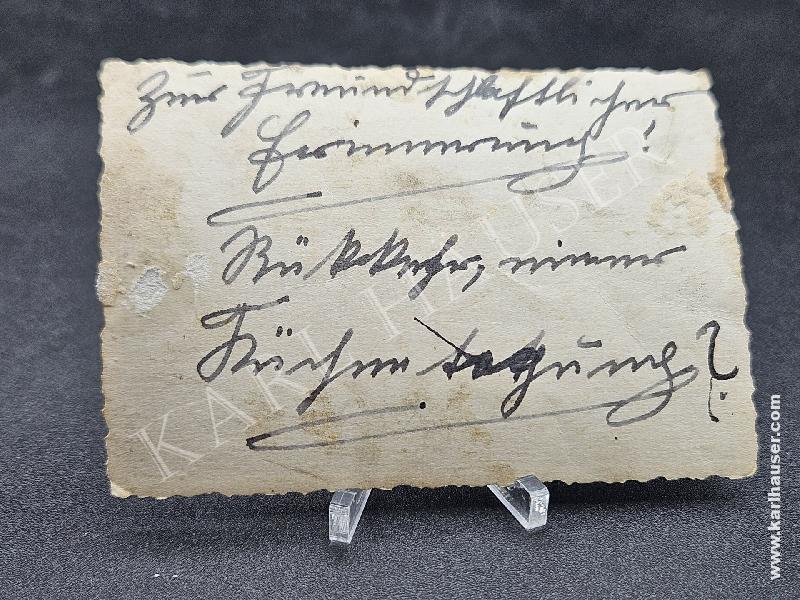 Zur Freundschaftlicher
Erinnerung!
Rükkkehr, einer
Küchentagung?
KARL HAUSER
www.karlhauser.com